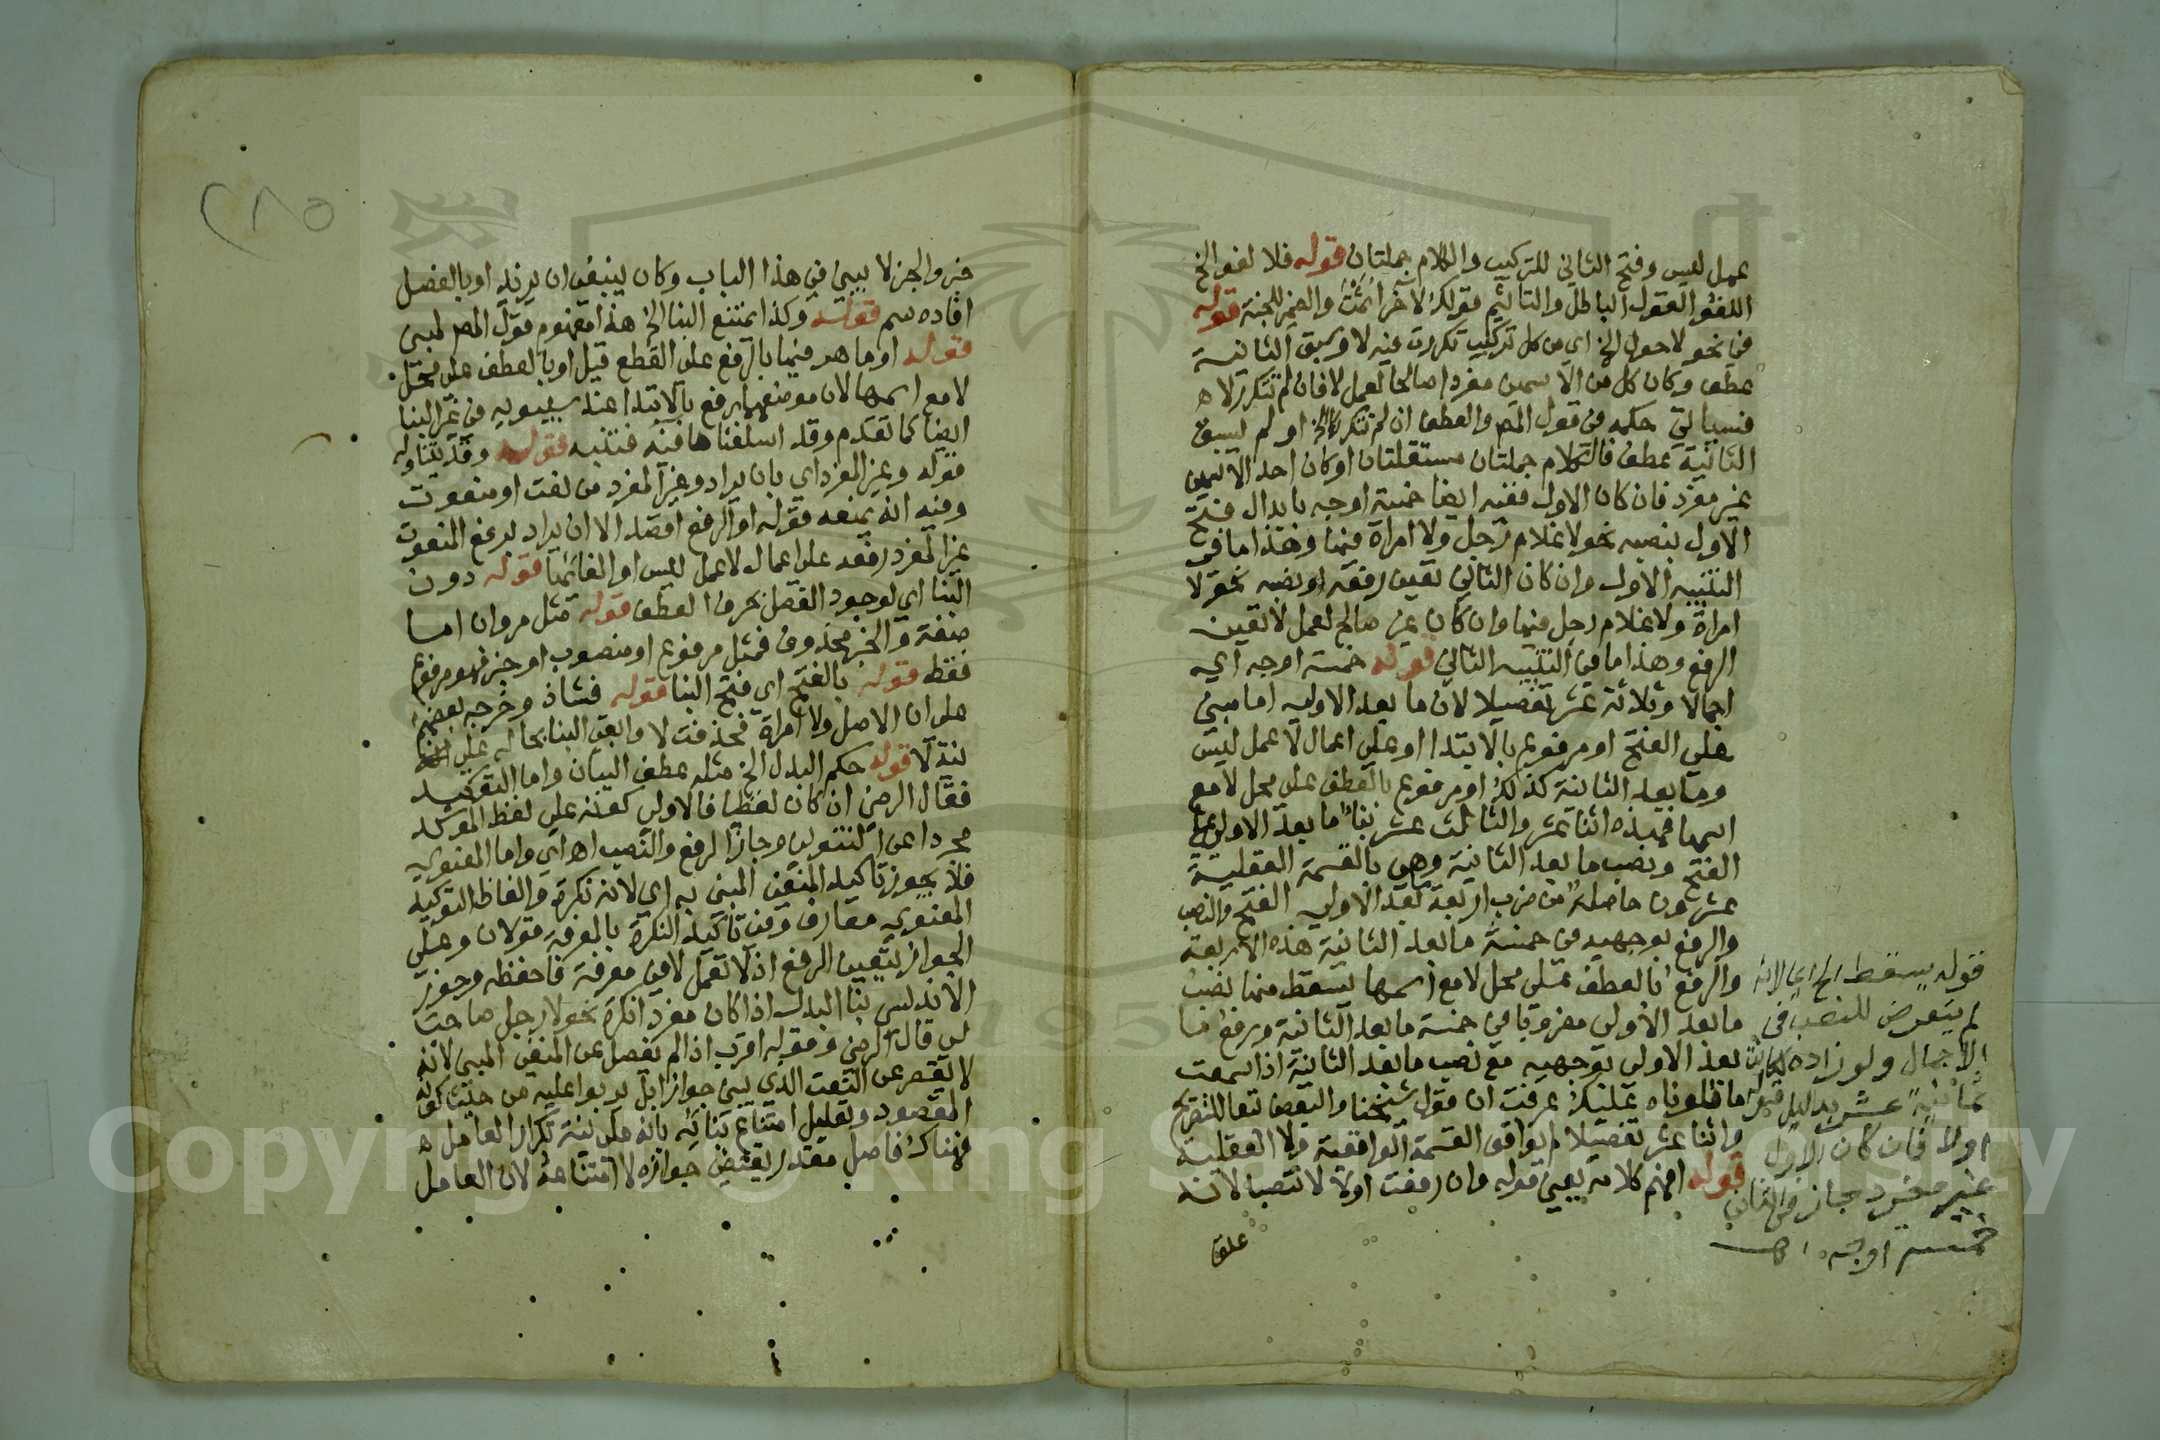 عمل ليس وفتح الثاني للتركيب والكلام جملتان قوله فلا لغو الخ
اللغو القول الباطل والتاثيم قولك لآخر أثمت والضمير للجنة قوله
في نحو لا حول الخ اي من كل تركيب تكررت فيه لا وسبق الثانية
عطف وكان كل من الاسمين مفردا صالحا لعمل لا فان لم تتكرر لا ه
فسياتي حكمه في قول المص والعطف ان لم تتكرر لا الخ او لم يسبق
الثانية عطف فالكلام جملتان مستقلتان او كان احد الاسمين
غير مفرد فان كان الاول ففيه ايضا خمسة اوجه بابدال فتح
الاول بنصبه نحو لا غلام رجل ولا امراة فيها وهذا ما في
التنبيه الاول وان كان الثاني تعين رفعه او نصبه نحو لا
امراة ولا غلام رجل فيها وان كان غير صالح لعمل لا تعين
الرفع وهذا ما في التنبيه الثاني قوله خمسة اوجه اي
اجمالا وثلاثة عشر تفصيلا لان ما بعد الاولى اما مبني
على الفتح او مرفوع بالابتدا او على اعمال لا عمل ليس
وما بعد الثانية كذلك او مرفوع بالعطف على محل لا مع
اسمها فهذه اثنا عشر والثالث عشر بناء ما بعد الاولى على
الفتح ونصب ما بعد الثانية وهي بالقسمة العقلية
عشرون حاصلة من ضرب اربعة بعد الاولى الفتح والنصب
والرفع بوجهيه في خمسة ما بعد الثانية هذه الاربعة
والرفع بالعطف على محل لا مع اسمها يسقط منها نصب
ما بعد الاولى مضروبا في خمسة ما بعد الثانية ورفع ما
بعد الاولى بوجهيه مع نصب ما بعد الثانية اذا سمعت
ما تلوناه عليك عرفت ان قول شيخنا والبعض تبعا للتصريح
واثنا عشر تفصيلا لم يوافق القسمة الواقعية ولا العقلية
قوله افهم كلامه يعني قوله وان رفعت اولا لا تنصبا لانه
علق
قوله يسقط الخ اي لانه
لم يتعرض للنصب في
الاجمال ولو زاده لكانت
ثمانية عشر بدليل قوله
اولا فان كان الاول
غير مفرد جاز في الثاني
خمسة اوجه اهـ
٢٨٥
خبر والجزلا يبين في هذا الباب وكان ينبغي ان يزيد او بالفصل
افاده سم قوله وكذا يمتنع البنا الخ هذا مفهوم قول المص لمبني
قوله او ما هر فيها بالرفع على القطع قيل او بالعطف على محل
لا مع اسمها لان موضعهما رفع بالابتدا عند سيبويه في غير البنا
ايضا كما تقدم وقد اسلفنا ما فيه فتنبه قوله وقد يتناوله
قوله وغير المفرد اي بان يراد وغير المفرد من نعت او منعوت
وفيه انه يمنعه قوله او الرفع اقصد الا ان يراد لرفع المنعوت
غير المفرد رفعه على اعمال لا عمل ليس او الغائها قوله دون
البنا اي لوجود الفصل بحرف العطف قوله مثل مروان اما
صفة والخبر محذوف فمثل مرفوع او منصوب او خبر فهو مرفوع
فقط قوله بالفتح اي فتح البنا قوله فشاذ وخرجه بعضهم
على ان الاصل ولا امراة فحذفت لا وابقي البنا بحاله على
نية لا قوله حكم البدل الخ مثله عطف البيان واما التوكيد
فقال الرضي ان كان لفظيا فالاولى كونه على لفظ الموكد
مجردا عن التنوين وجاز الرفع والنصب اه اي واما المعنوي
فلا يجوز تاكيد المنفي المبني به اي لانه نكرة والفاظ التوكيد
المعنوي معارف وفي تاكيد النكرة بالمعرفة قولان وعلى
الجواز يتعين الرفع اذ لا تعمل لا في معرفة فاحفظه وجوز
الاندلسي بنا البدل اذا كان مفردا نكرة نحو لا رجل صاحب
لي قال الرضي وقوله اقرب اذا لم يفصل عن المنفي المبني لانه
لا يقصر عن النعت الذي يبنى جوازا بل يربو عليه من حيث كونه
المقصود وتعليل امتناع بنائه بانه على نية تكرار العامل ه
فهناك فاصل مقدر يقتضي جوازه لا امتناعه لان العامل